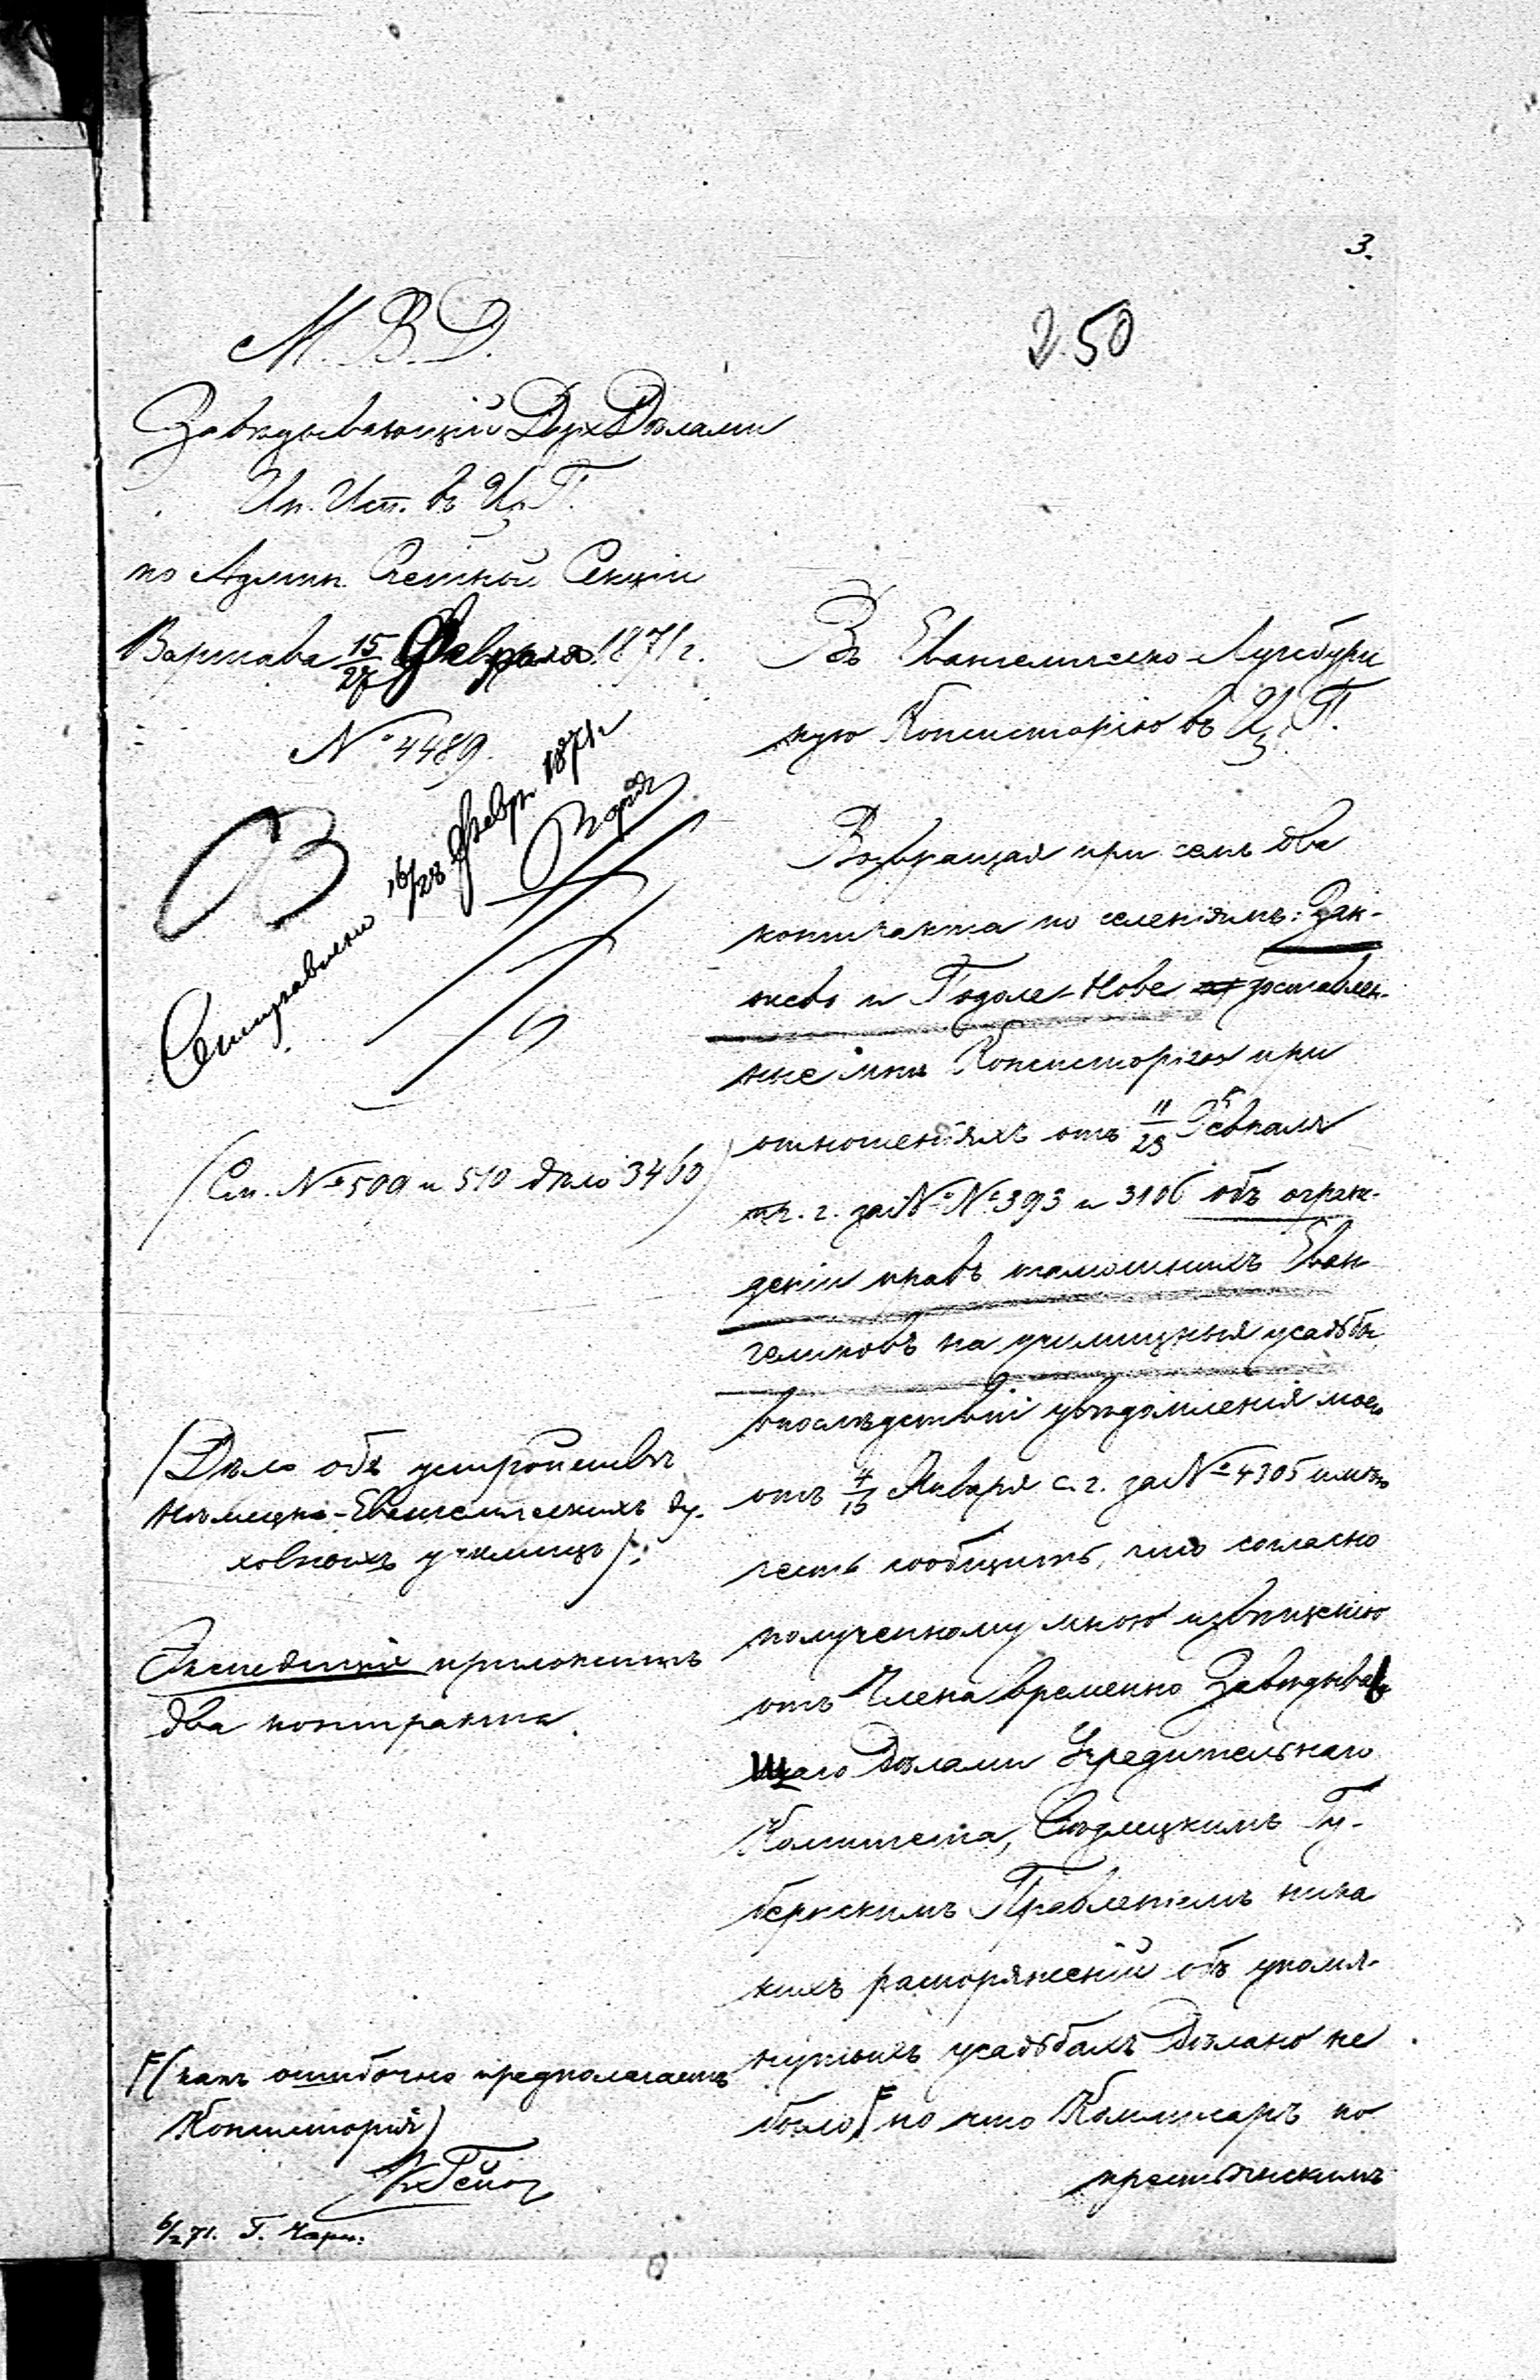 3.
250
М. В. Д.
Завѣдывающій Дух Дѣлами
Ин. Исп. въ Ц. П.
по Админ. Счетной Секціи
Варшава 15/27 Февраля 1871 г.
№ 4489.
16/28 Февр. 1871 г.
Въ Евангелическо-Аугсбург
скую Консисторію въ Ц. П.
Возвращая при семъ два
контракта по селеніямъ:
и Подоле-Нове доставлен-
ные мнѣ Консисторіею при
отношеніяхъ отъ 11/23 Февраля
пр. г. за №№ 393 и 3106 объ ограж-
деніи правъ тамошнихъ Еван
геликовъ на училищныя усадьбы,
впослѣдствіи увѣдомленія моего
отъ 4/16 Января с. г. за № 4305 имѣю
честь сообщить, что согласно
полученному мною извѣщенію
отъ Члена временно Завѣдываю
щаго Дѣлами Учредительнаго
Комитета, Сѣдлецкимъ Гу-
бернскимъ Правленіемъ ника
кихъ распоряженій объ упомя-
нутымъ усадьбамъ дѣлано не
было, но что Коммисаръ по
крестьянскимъ
(См. № 509 и 510 дѣло 3460)
(Дѣло объ устройствѣ
Нѣмецко-Евангелическихъ ду-
ховныхъ училищъ).
Экспедиція приложитъ
два контракта.
(какъ ошибочно предполагаетъ
Консисторія)
6/2 71.